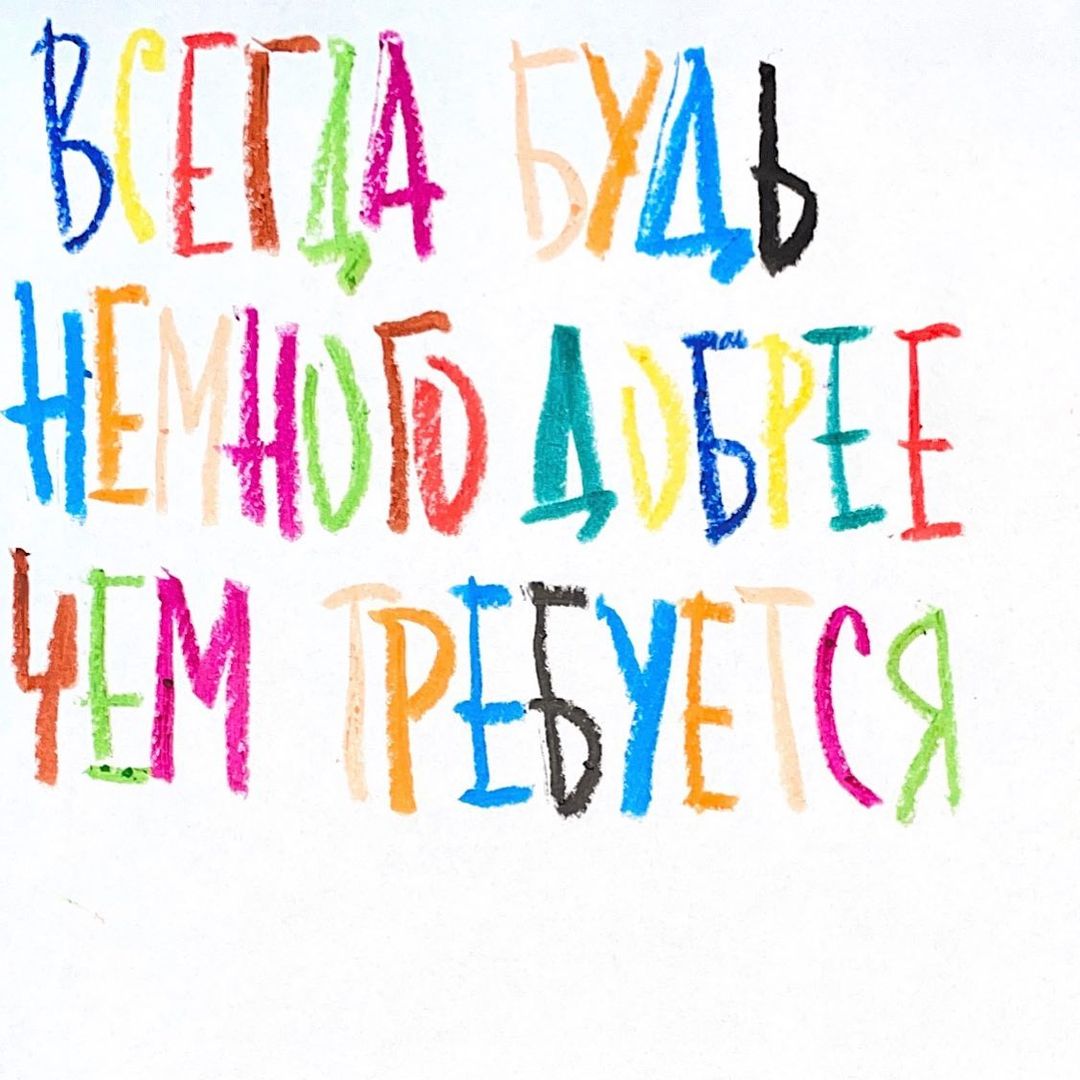 ВСЕГДА БУДЬ
НЕМНОГО ДОБРЕЕ
ЧЕМ ТРЕБУЕТСЯ